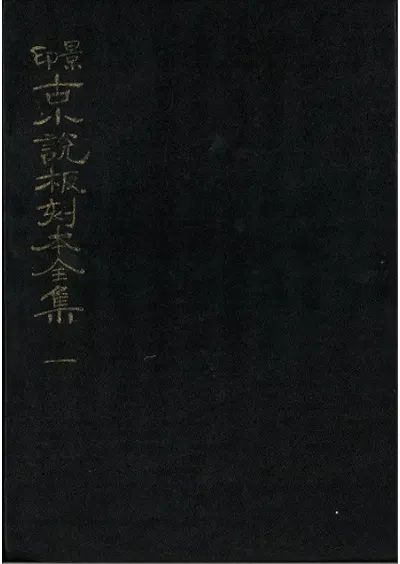 景印 古小說板刻本全集 一